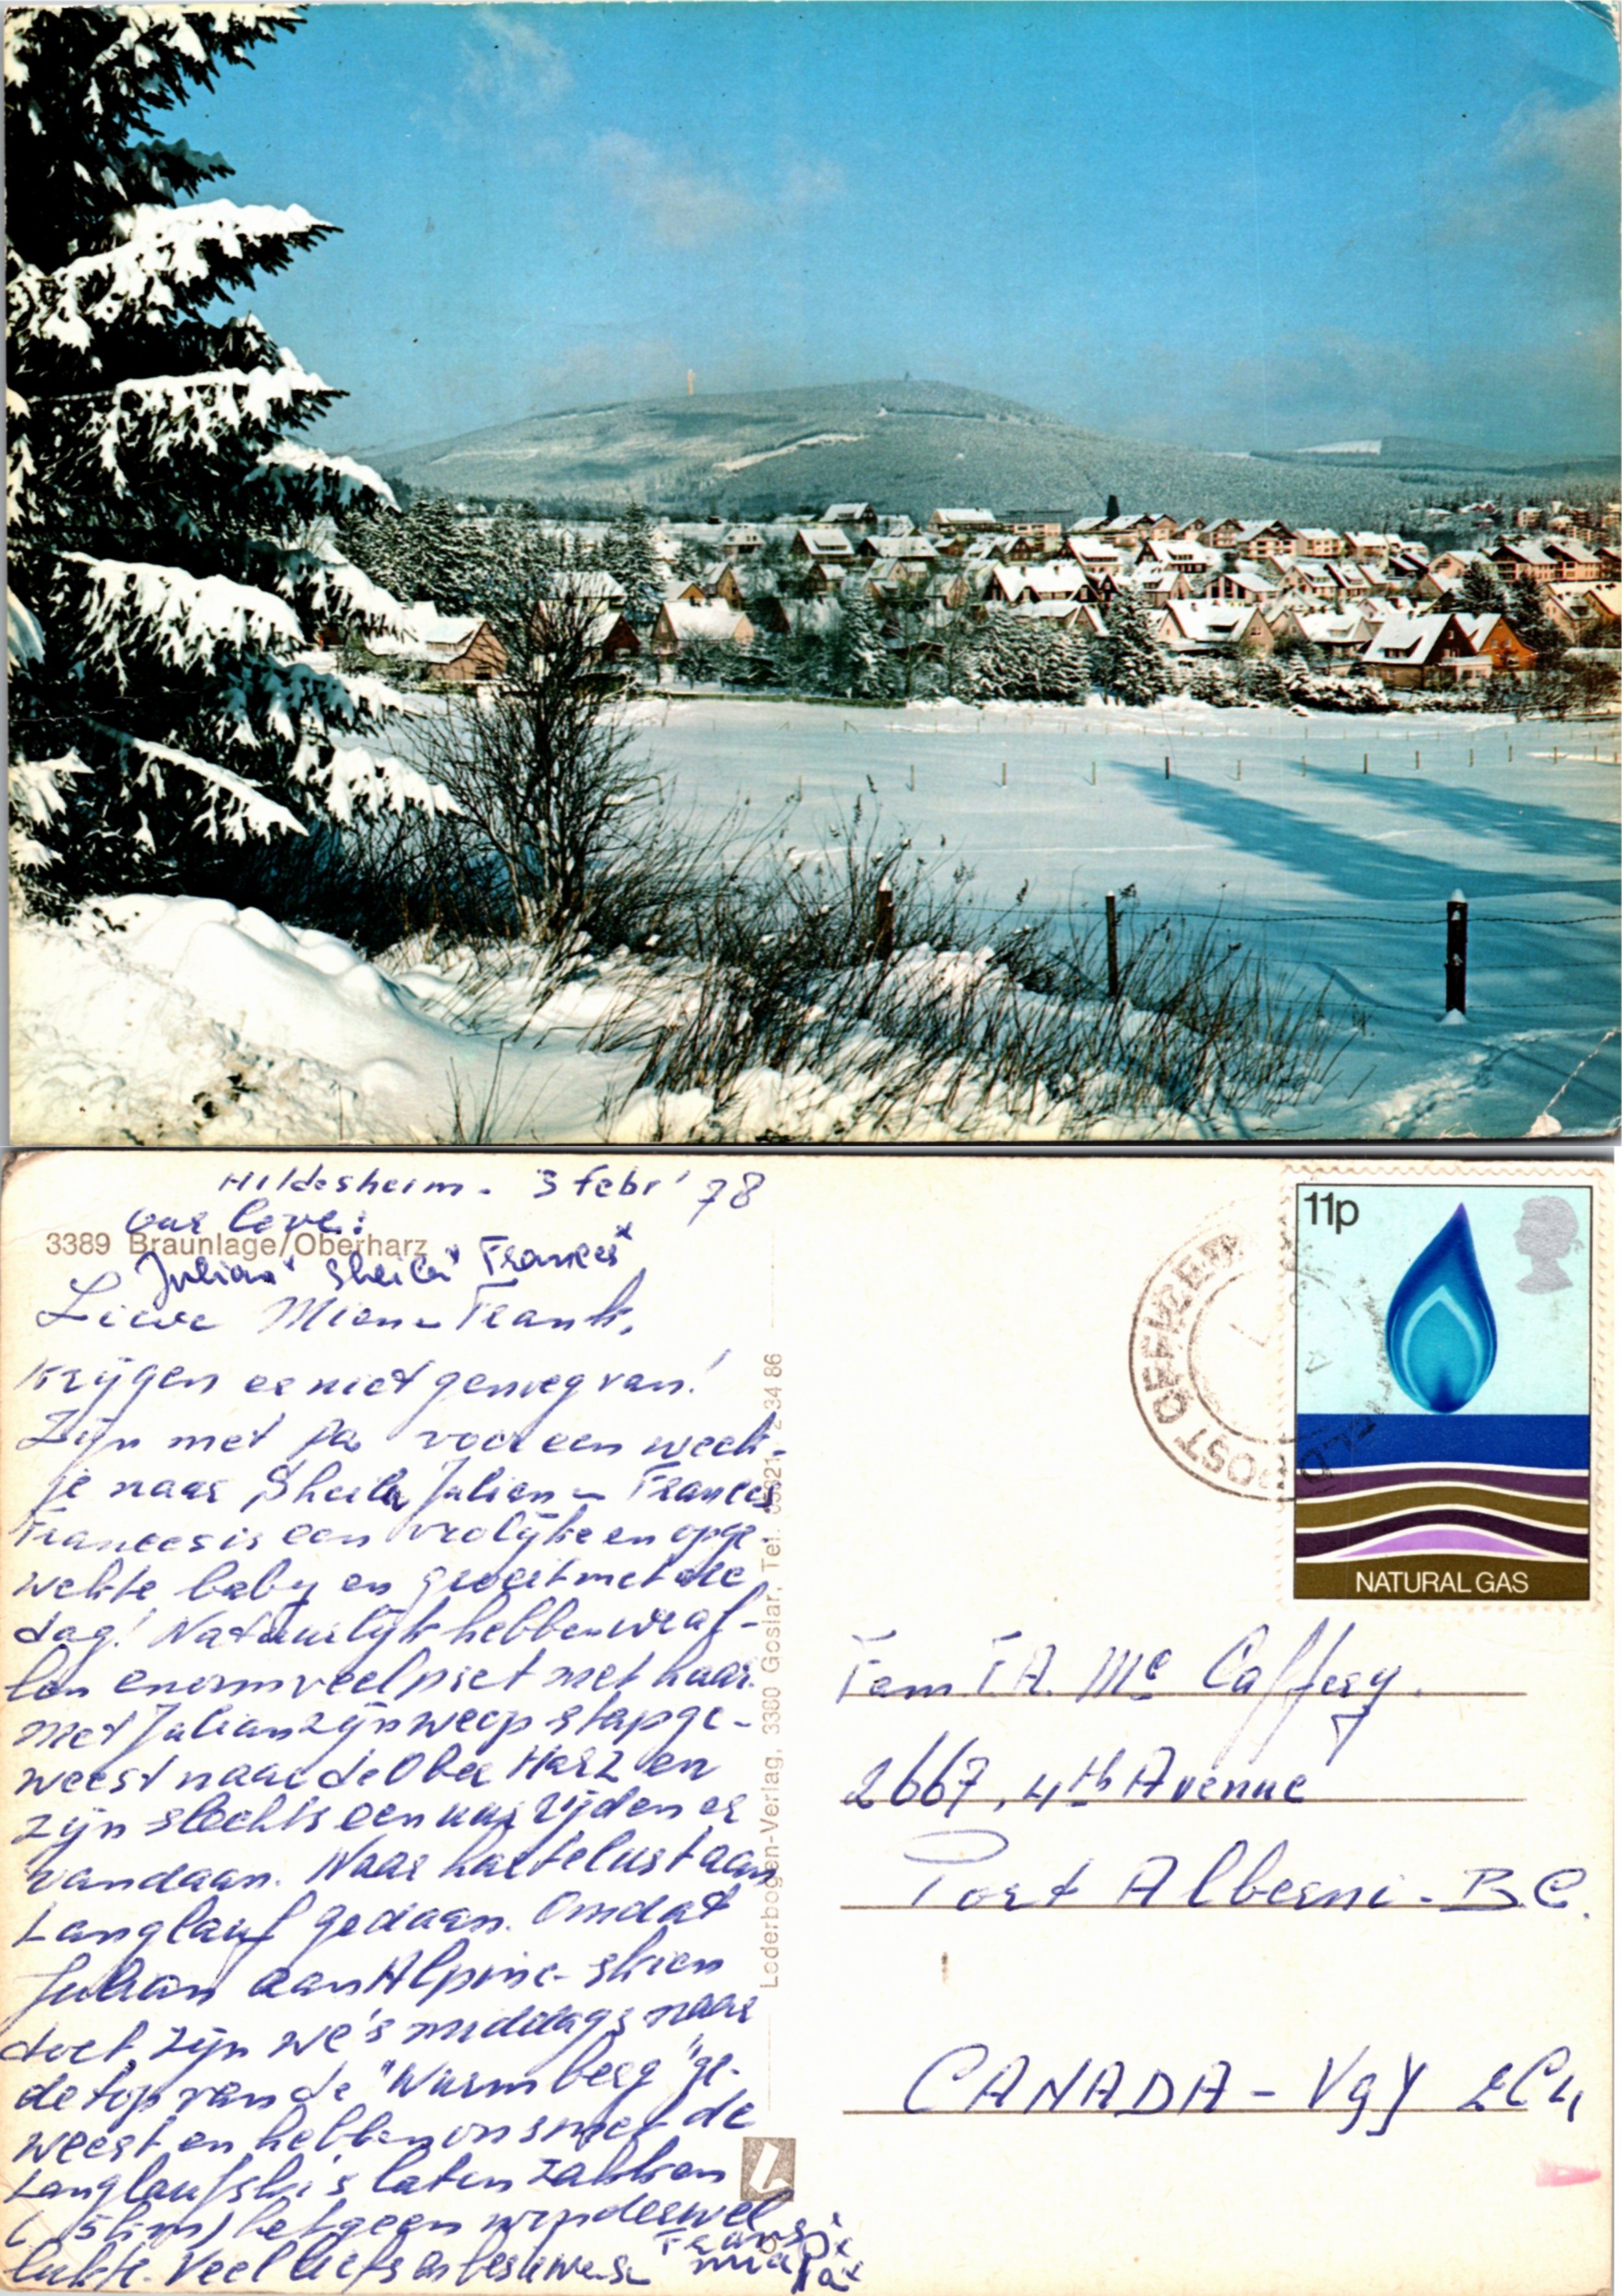 Hildesheim. 3 febr' 78
our love:
3389 Braunlage/Oberharz
Julian x Sheila x Frances x
Lieve Mien - Frank,
Krijgen er niet genoeg van!
Zijn met Pa voor een week-
je naar Sheila Julian - Frances
Frances is een vrolijke en opge-
wekte baby en groeit met de
dag! Natuurlijk hebben we al-
len enorm veel pret met haar.
Met Julian zijn we op stap ge-
weest naar de Ober Harz en
zijn slechts een uur rijden er
vandaan. Naar hartelust aan
Langlauf gedaan. Omdat
Julian aan Alpine-skien
doet, zijn we 's middags naar
de top van de "Wurmberg" ge-
weest en hebben ons met de
Langlaufski's laten zakken
(5 km) hetgeen wonderwel
lukte. Veel liefs
Pa x
Lederbogen-Verlag, 3380 Goslar, Tel. 05321/2 34 86
11p
NATURAL GAS
POST OFFICE
Fam. F.A. Mc Caffery.
2667, 4th Avenue
Port Alberni - B.C.
CANADA - V9Y 2C4